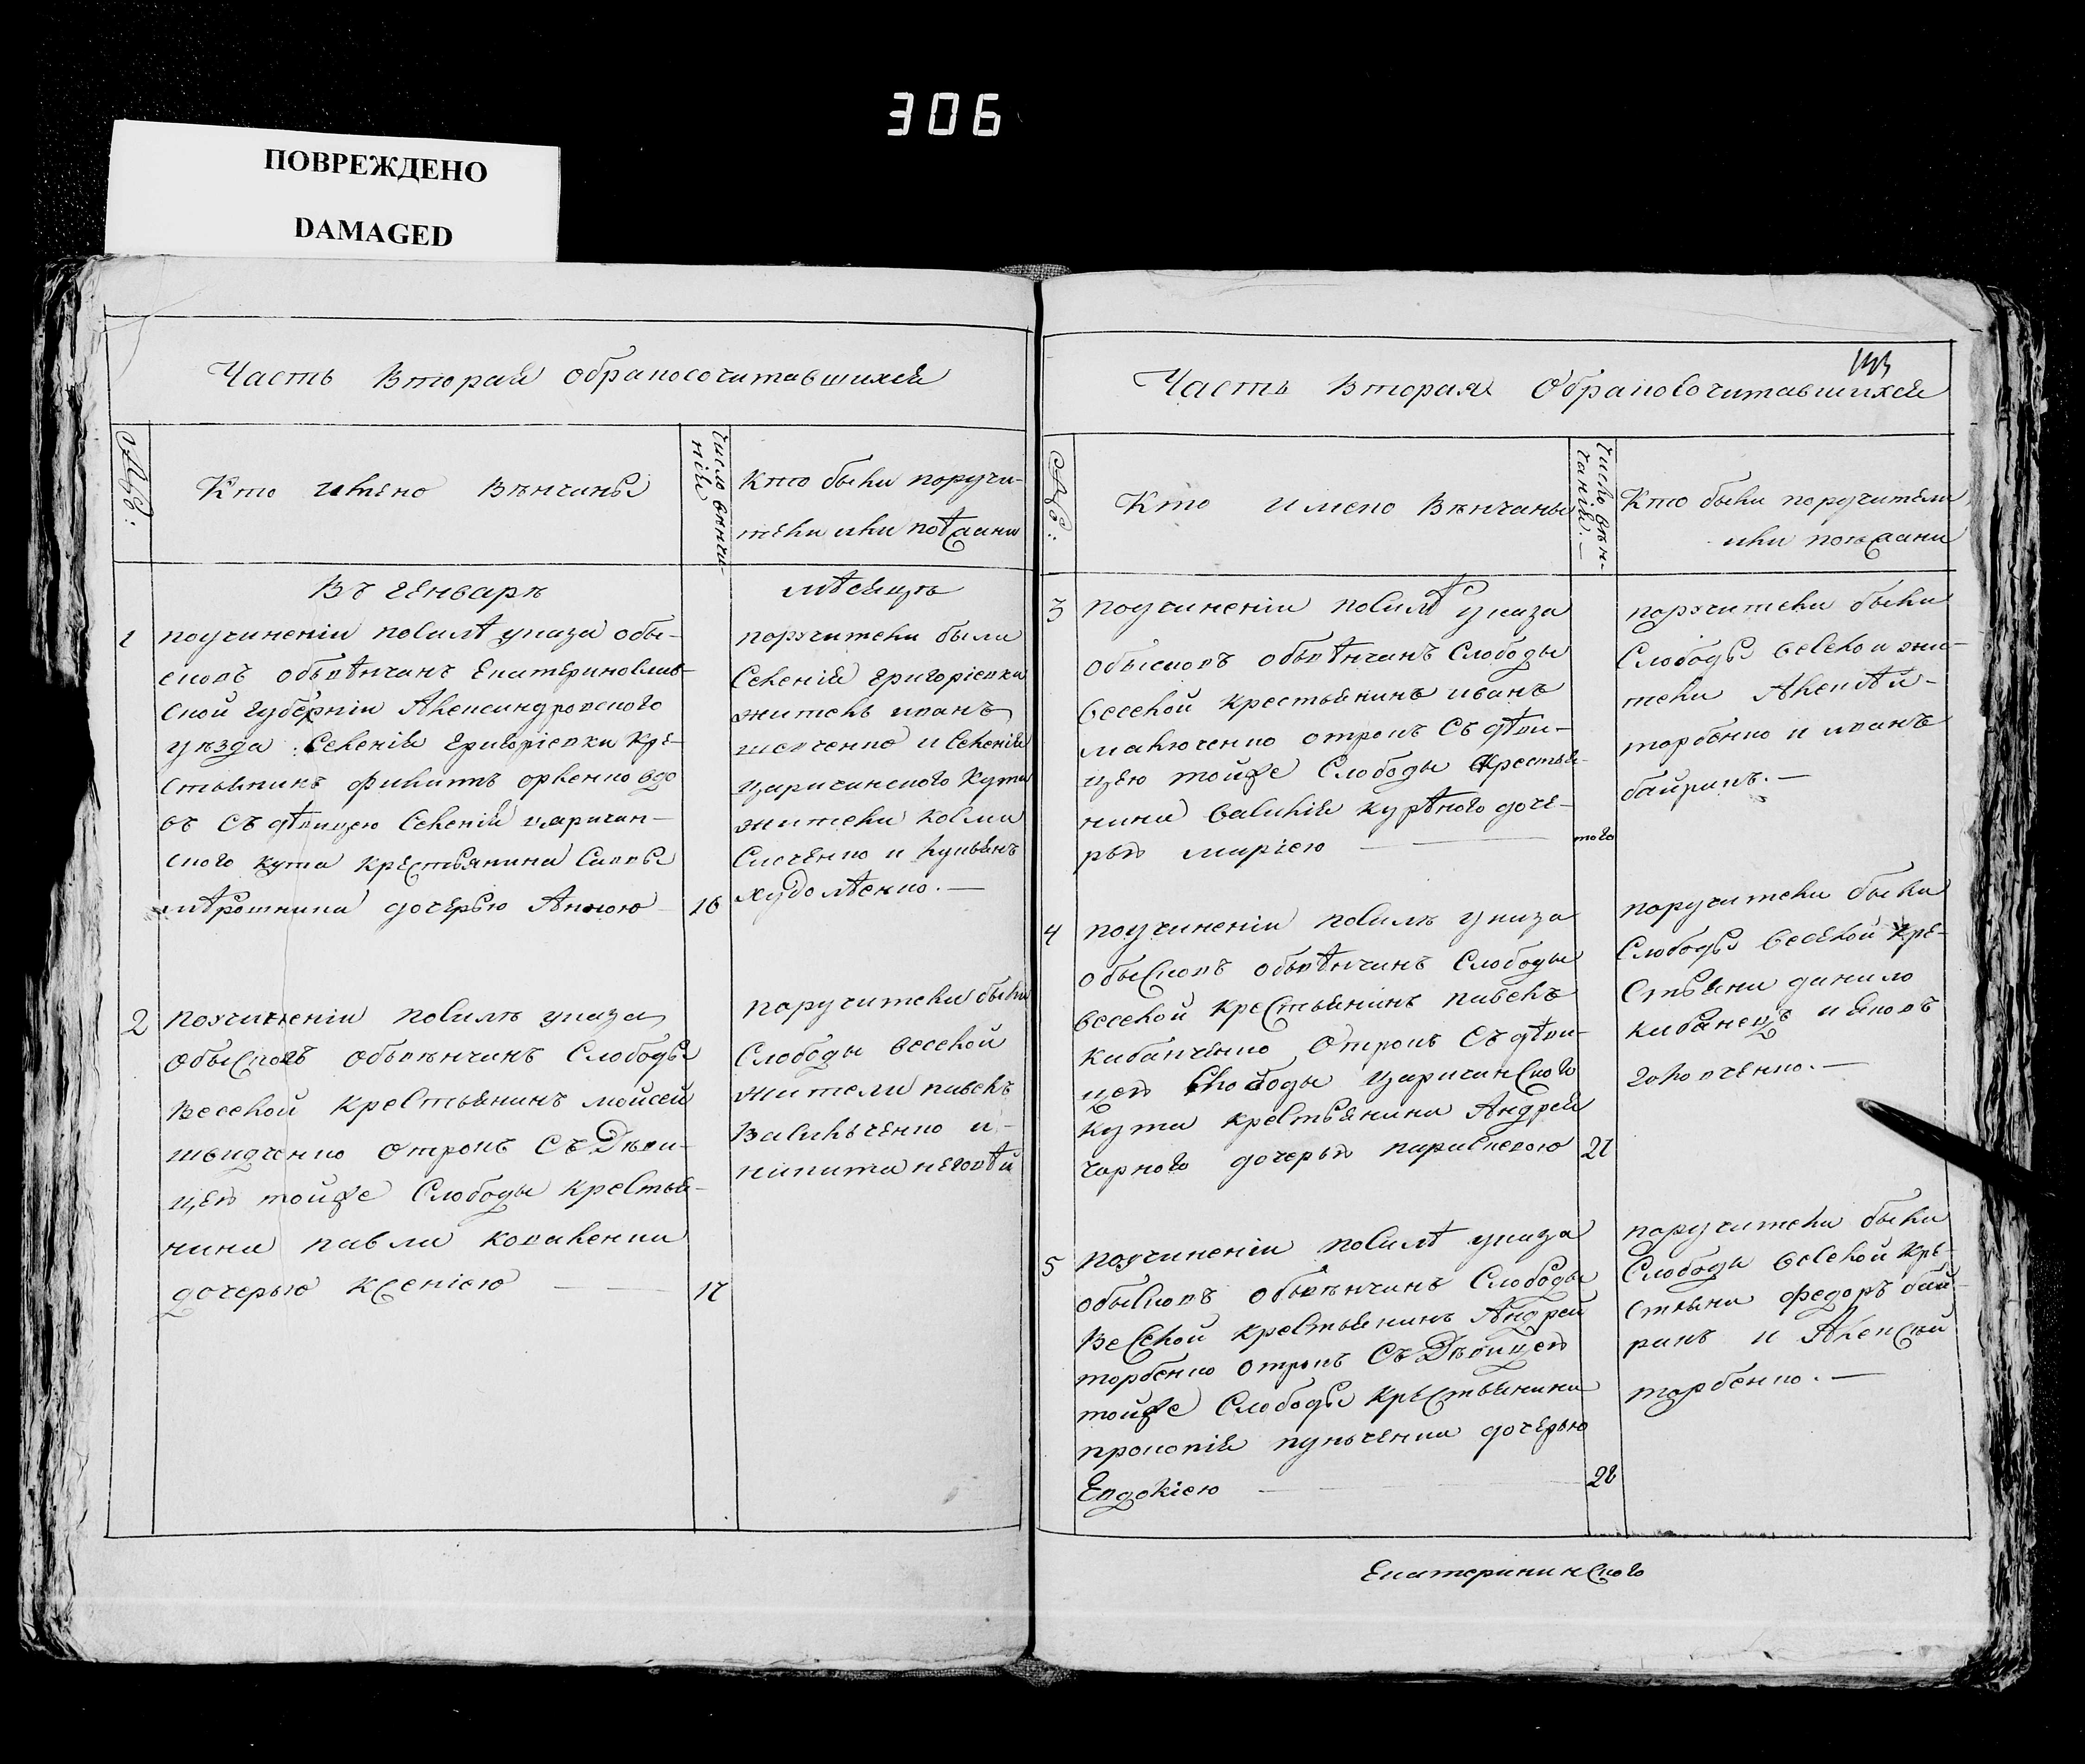 306
ПОВРЕЖДЕНО
DAMAGED
Часть Вторая обракосочитавшихся
№:
Кто имено Венчаны
число венча-
ній
кто были поручи-
тели или поѣзани
Въ генваре
мѣсецѣ
1
поучиненіи посилѣ указа обы-
сковъ обвѣнчанъ Екатеринослав-
ской губерніи Александровского
уѣзда Селенія григоріевки кре-
стьянинъ филипъ орленко вдо
въ съ дѣвицею Селенія царичан-
ского кута крестьянина Савы
мѣрошника дочерью Анною
16
поручители были
Селенія григоріевки
житель иванъ
шевченко и Селенія
царичанского кута
жители козма
Слюченко и лукьянъ
худолѣенко. —
2
поучиненіи посилѣ указа
обысковъ обвѣнчанъ Слободы
Веселой крестьянинъ мойсей
швидченко отрокъ съ Дѣви-
цею тойже Слободы крестья-
нина павла коваленка
дочерью ксеніею
17
поручители были
Слободы веселой
жители павелъ
Василъченко и
никита неговѣй
143
Часть Вторая Обракосочитавшихся
№:
Кто имено Вѣнчаны
число вѣн-
чаній. —
Кто были поручители
или поѣзани
3
поучиненіи посилѣ указа
обысковъ обвѣнчанъ Слободы
веселой крестьянинъ иванъ
маключенко отрокъ съ дѣви-
цею тойже Слободы крестья-
нина василія курѣного доче-
рью маріею
того
поручители были
Слободы веселой жи-
тели Алексѣй
торбенко и иванъ
байракъ. —
4
поучиненіи посилѣ указа
обысковъ обвѣнчанъ Слободы
веселой крестьянинъ павелъ
кабанченко Отрокъ съ дѣви-
цею Слободы царичанского
кута крестьянина Андрея
чорного дочерью параскевою
21
поручители были
Слободы веселой кре-
стьяни данило
кабанецъ и яковъ
головченко. —
5
поучиненіи посилѣ указа
обысковъ обвѣнчанъ Слободы
Веселой крестьянинъ Андрей
торбенко отрокъ съ Дѣвицею
тойже Слободы крестьянина
прокопія кунченка дочерью
Евдокіею
28
поручители были
Слободы веселой кре-
стьяни федоръ бай-
ракъ и Алексѣй
торбенко. —
Екатерининского